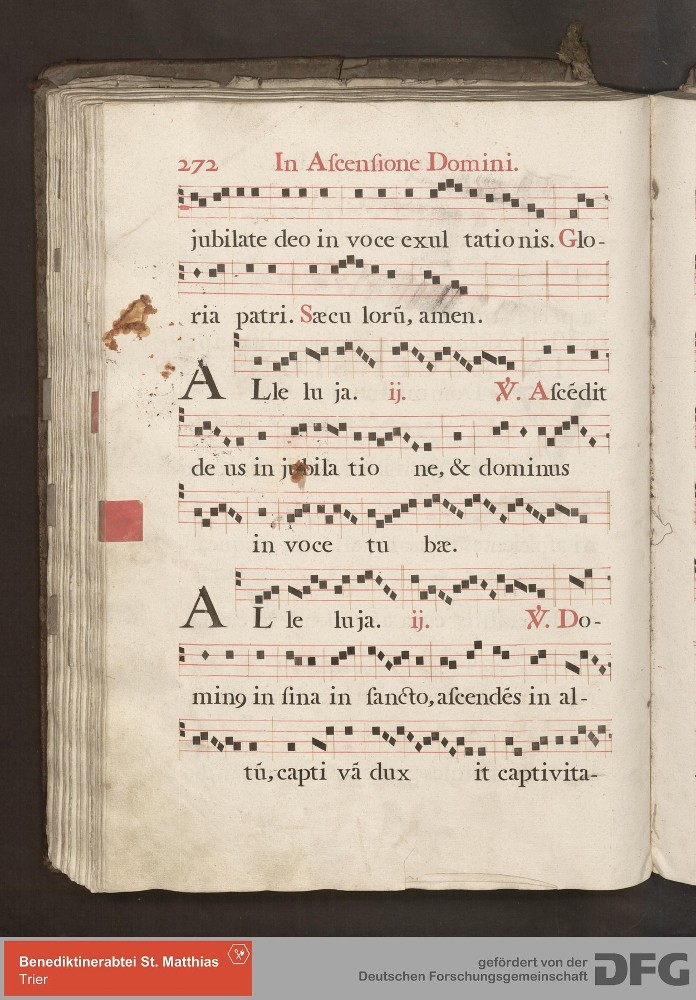 272 In Aſcenſione Domini.
jubilate deo in voce exul tationis. Glo-
ria patri. Sæcu lorū, amen.
ALle lu ja. ij. ℣. Aſcēdit
de us in jubila tio ne, & dominus
in voce tu bæ.
AL le luja. ij. ℣. Do-
minꝰ in ſina in ſancto, aſcendēs in al-
tū, capti vā dux it captivita-
Benediktinerabtei St. Matthias
Trier
gefördert von der
Deutschen Forschungsgemeinschaft DFG